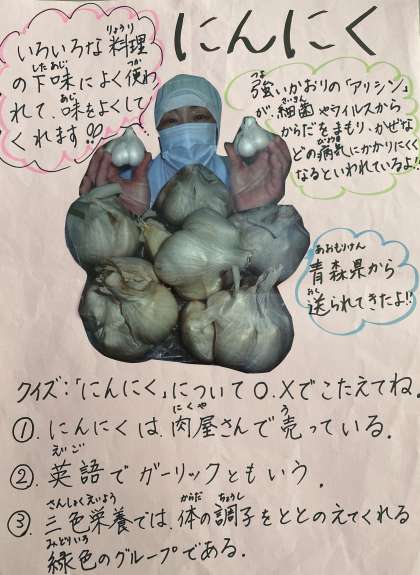 にんにく
いろいろな料理
りょうり
の下味によく使わ
したあじ
つか
れて、味をよくして
あじ
くれます!!
強いかおりの「アリシン」
つよ
が、細菌やウイルスから
さいきん
からだをまもり、かぜな
どの病気にかかりにくく
びょうき
なるといわれているよ!!
青森県から
あおもりけん
送られてきたよ!!
おく
クイズ:「にんにく」について○、×でこたえてね。
①. にんにくは、肉屋さんで売っている。
にくや
う
②. 英語でガーリックともいう。
えいご
③. 三色栄養では、体の調子をととのえてくれる
さんしょくえいよう
からだ
ちょうし
緑色のグループである。
みどりいろ